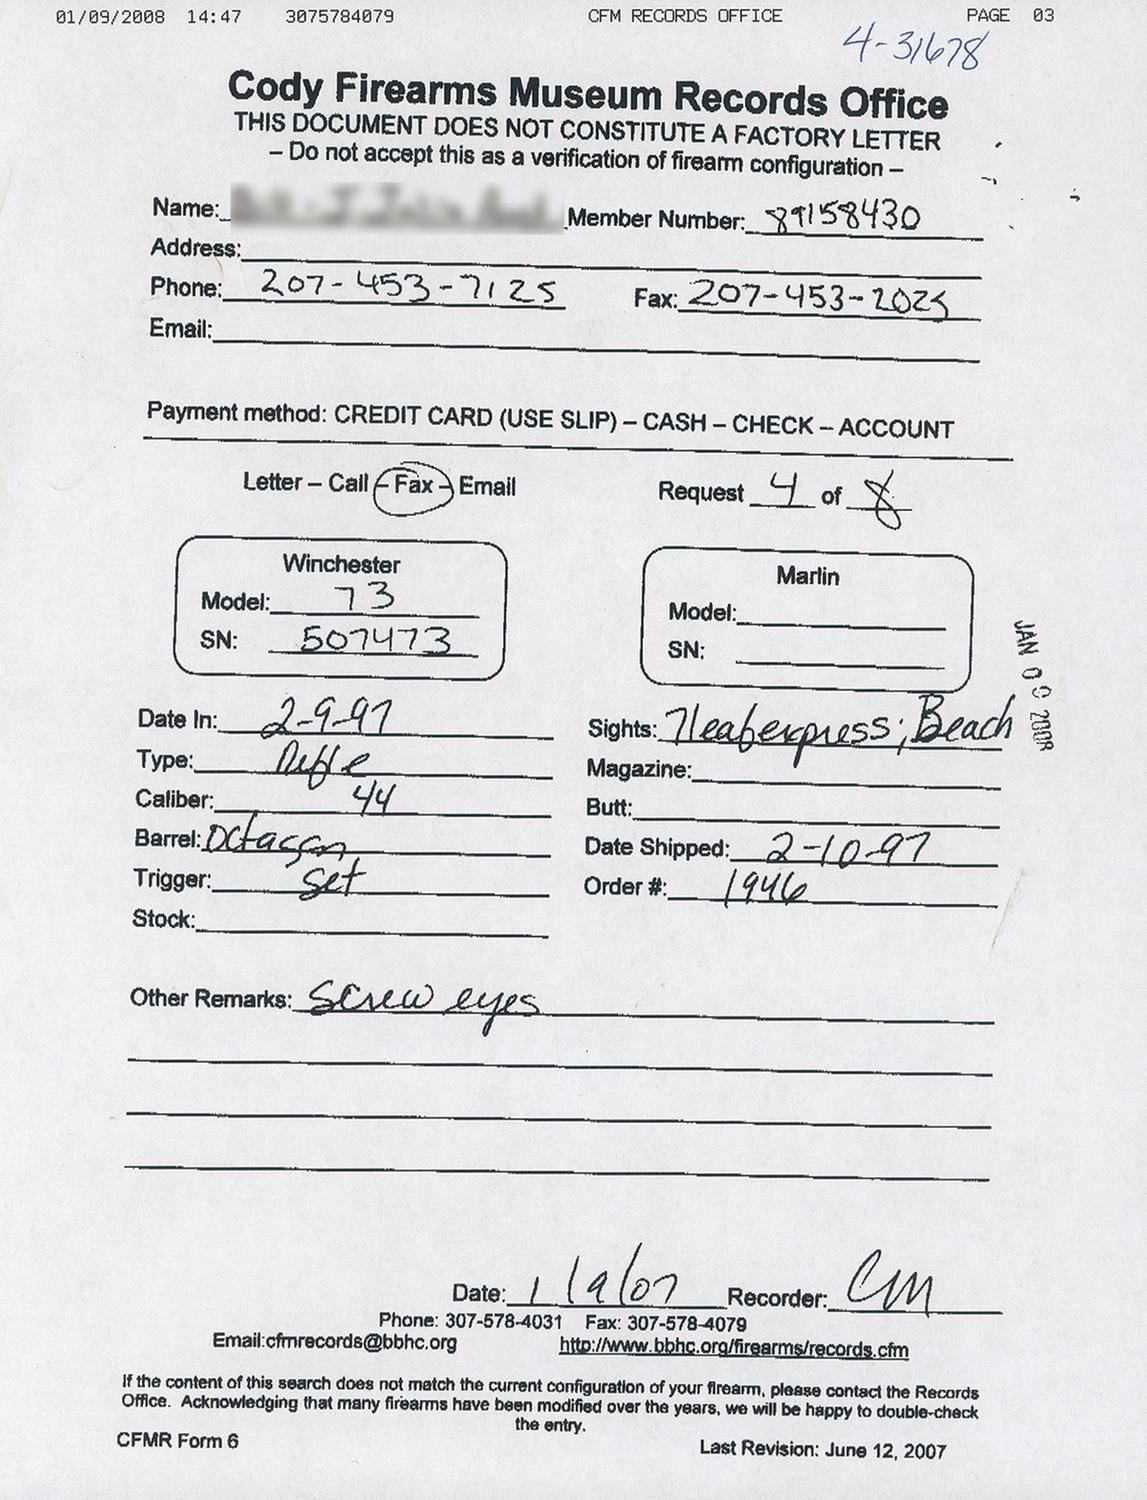 01/09/2008 14:47 3075784079 CFM RECORDS OFFICE PAGE 03
4-31678
Cody Firearms Museum Records Office
THIS DOCUMENT DOES NOT CONSTITUTE A FACTORY LETTER
– Do not accept this as a verification of firearm configuration –
Name: Member Number: 89158430
Address:
Phone: 207-453-7125 Fax: 207-453-2025
Email:
Payment method: CREDIT CARD (USE SLIP) – CASH – CHECK – ACCOUNT
Letter – Call – Fax – Email Request 4 of 8
Winchester
Model: 73
SN: 507473
Marlin
Model:
SN:
JAN 09 2008
Date In: 2-9-97 Sights: 7leafexpress; Beach
Type: Rifle Magazine:
Caliber: 44 Butt:
Barrel: Octagon Date Shipped: 2-10-97
Trigger: Set Order #: 1946
Stock:
Other Remarks: Screw eyes
Date: 1/9/07 Recorder: CM
Phone: 307-578-4031 Fax: 307-578-4079
Email:cfmrecords@bbhc.org http://www.bbhc.org/firearms/records.cfm
If the content of this search does not match the current configuration of your firearm, please contact the Records
Office. Acknowledging that many firearms have been modified over the years, we will be happy to double-check
the entry.
CFMR Form 6 Last Revision: June 12, 2007